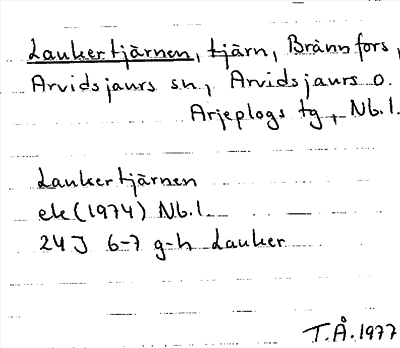 Laukertjärnen, tjärn, Brännfors,
Arvidsjaurs sn, Arvidsjaurs o.
Arjeplogs tg, Nb.l.
Laukertjärnen
ek (1974) Nb.l
24J 6-7 g-h Lauker
T.Å. 1977